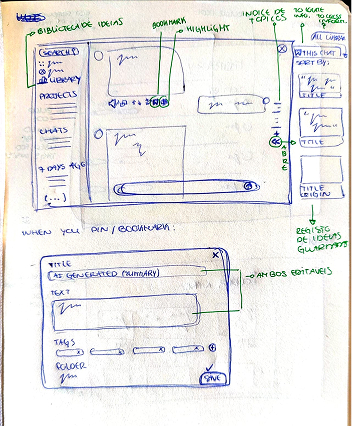 BIBLIOTECA DE IDEIAS
BOOKMARK
HIGHLIGHT
INDICE DE TOPICOS
SEARCH
LIBRARY
PROJECTS
CHATS
7 DAYS AGO
(...)
ABRE
ALL
THIS CHAT
SORT BY:
TITLE
TITLE
TITLE
REGISTO
DE IDEIAS
GUARDADAS
WHEN YOU PIN/BOOKMARK:
X
TITLE
AI GENERATED (SUMMARY)
TEXT
AMBOS EDITÁVEIS
TAGS
FOLDER
SAVE